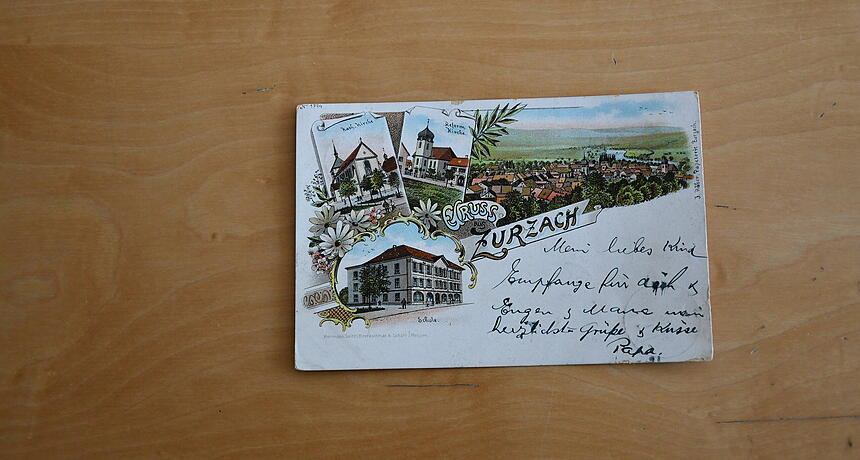 Kath. Kirche
Reform.
Kirche.
GRUSS
aus
ZURZACH
Schule.
Mein liebes Kind
Empfange für dich &
Eugen & Mama mein
herzlichste Grüße & Küsse
Papa.